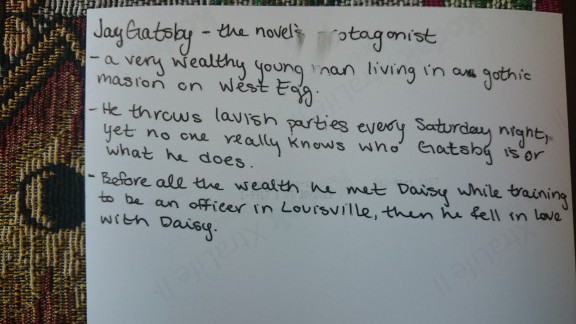 Jay Gatsby - the novel's otagonist
- a very wealthy young man living in a gothic
masion on West Egg.
- He throws lavish parties every Saturday night,
yet no one really knows who Gatsby is or
what he does.
- Before all the wealth he met Daisy while training
to be an officer in Louisville, then he fell in love
with Daisy.